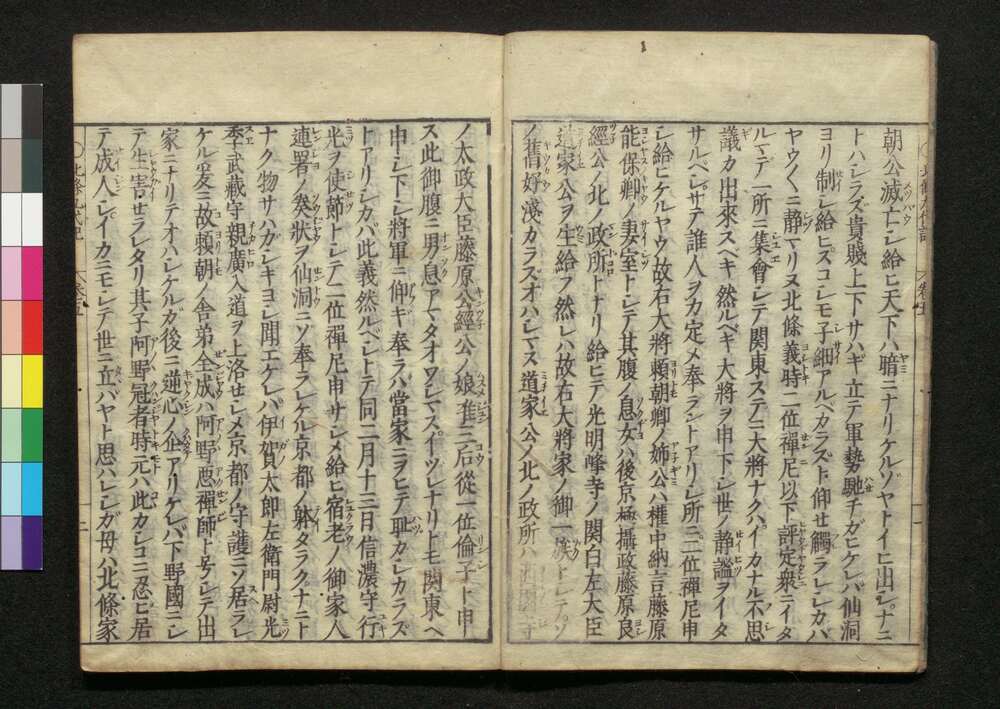 朝公滅亡シ給ヒ天下ハ暗ニナリケルゾヤトイヒ出シナニ
トハシラズ貴賤上下サハギ立テ軍勢馳チガヒケレバ仙洞
ヨリ制シ給ヒスコシモ子細アルベカラズト仰セ觸ラレシカバ
ヤウ〱ニ静マリヌ北條義時二位禪尼以下評定衆ニイタ
ルマデ一所ニ集會シテ関東ステニ大將ナクハイカナル不思
議カ出來スベキ然ルベキ大將ヲ申下シ世ノ静謐ヲイタ
サルベシサテ誰人ヲカ定メ奉ラントアリシ所ニ二位禪尼申
シ給ヒケルヤウ故右大將頼朝卿ノ姉公ハ權中納言藤原
能保卿ノ妻室トシテ其腹ノ息女ハ後京極攝政藤原良
經公ノ北ノ政所トナリ給ヒテ光明峰寺ノ関白左大臣
道家公ヲ生給フ然レハ故右大將家ノ御一族トシテソ
ノ舊好淺カラズオハシマス道家公ノ北ノ政所ハ西園寺
ノ太政大臣藤原公經公ノ娘准三后從一位倫子ト申
ス此御腹ニ男息アマタオハシマスイツレナリトモ関東ヘ
申シ下シ將軍ニ仰ギ奉ラハ當家ニヲヒテ耻カシカラズ
トアリシカバ此義然ルベシトテ同二月十三日信濃守行
光ヲ使節トシテ二位禪尼申サシメ給ヒ宿老ノ御家人
連署ノ奏状ヲ仙洞ニソ奉ラレケル京都ノ躰タラクナニト
ナク物サハガシキヨシ聞エケレバ伊賀太郎左衛門尉光
季武藏守親廣入道ヲ上洛セシメ京都ノ守護ニソ居ラレ
ケル爰ニ故頼朝ノ舎弟全成ハ阿野悪禪師ト号シテ出
家ニナリテオハシケルガ後ニ逆心ノ企アリケレバ下野國ニシ
テ生害セラレタリ其子阿野冠者時元ハ此カシコニ忍ヒ居
テ成人シイカニモシテ世ニ立バヤト思ハレシガ母ハ北條家